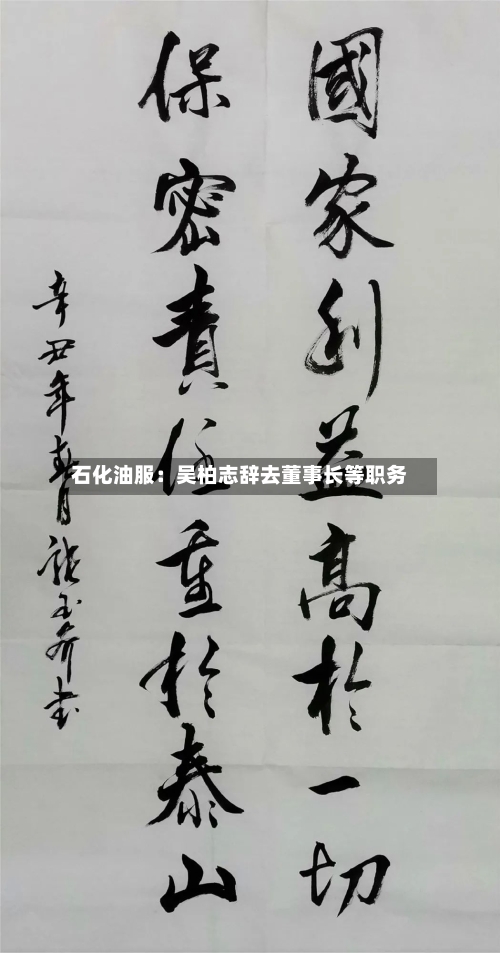 國家利益高於一切
保密責任重於泰山
辛丑年春月
石化油服：吴柏志辞去董事长等职务